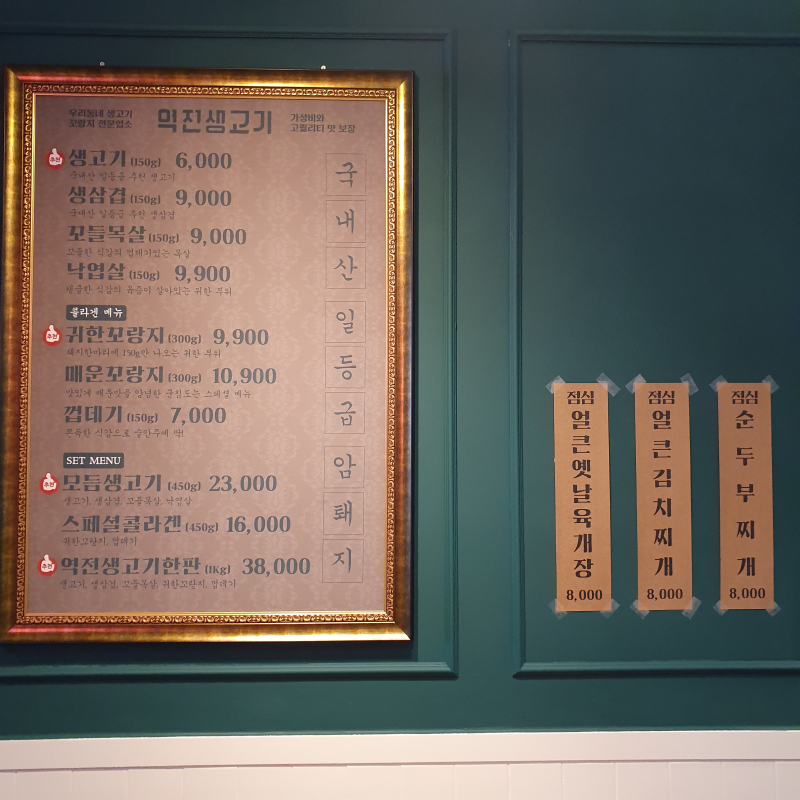 우리동네 생고기
꼬랑지 전문업소
역전생고기
가성비와
고퀄리티 맛 보장
추천 생고기 (150g) 6,000
국내산 일등급 추천 생고기
생삼겹 (150g) 9,000
국내산 일등급 추천 생삼겹
꼬들목살 (150g) 9,000
꼬들한 식감의 껍데기있는 목살
낙엽살 (150g) 9,900
탱글한 식감의 육즙이 살아있는 귀한 부위
콜라겐 메뉴
추천 귀한꼬랑지 (300g) 9,900
돼지한마리에 150g만 나오는 귀한 부위
매운꼬랑지 (300g) 10,900
맛있게 매운맛을 양념한 군침도는 스페셜 메뉴
껍데기 (150g) 7,000
쫀득한 식감으로 술안주에 딱!
SET MENU
추천 모듬생고기 (450g) 23,000
생고기, 생삼겹, 꼬들목살, 낙엽살
스페셜콜라겐 (450g) 16,000
귀한꼬랑지, 껍데기
추천 역전생고기한판 (1Kg) 38,000
생고기, 생삼겹, 꼬들목살, 귀한꼬랑지, 껍데기
국내산
일등급
암퇘지
점심
얼큰옛날육개장
8,000
점심
얼큰김치찌개
8,000
점심
순두부찌개
8,000